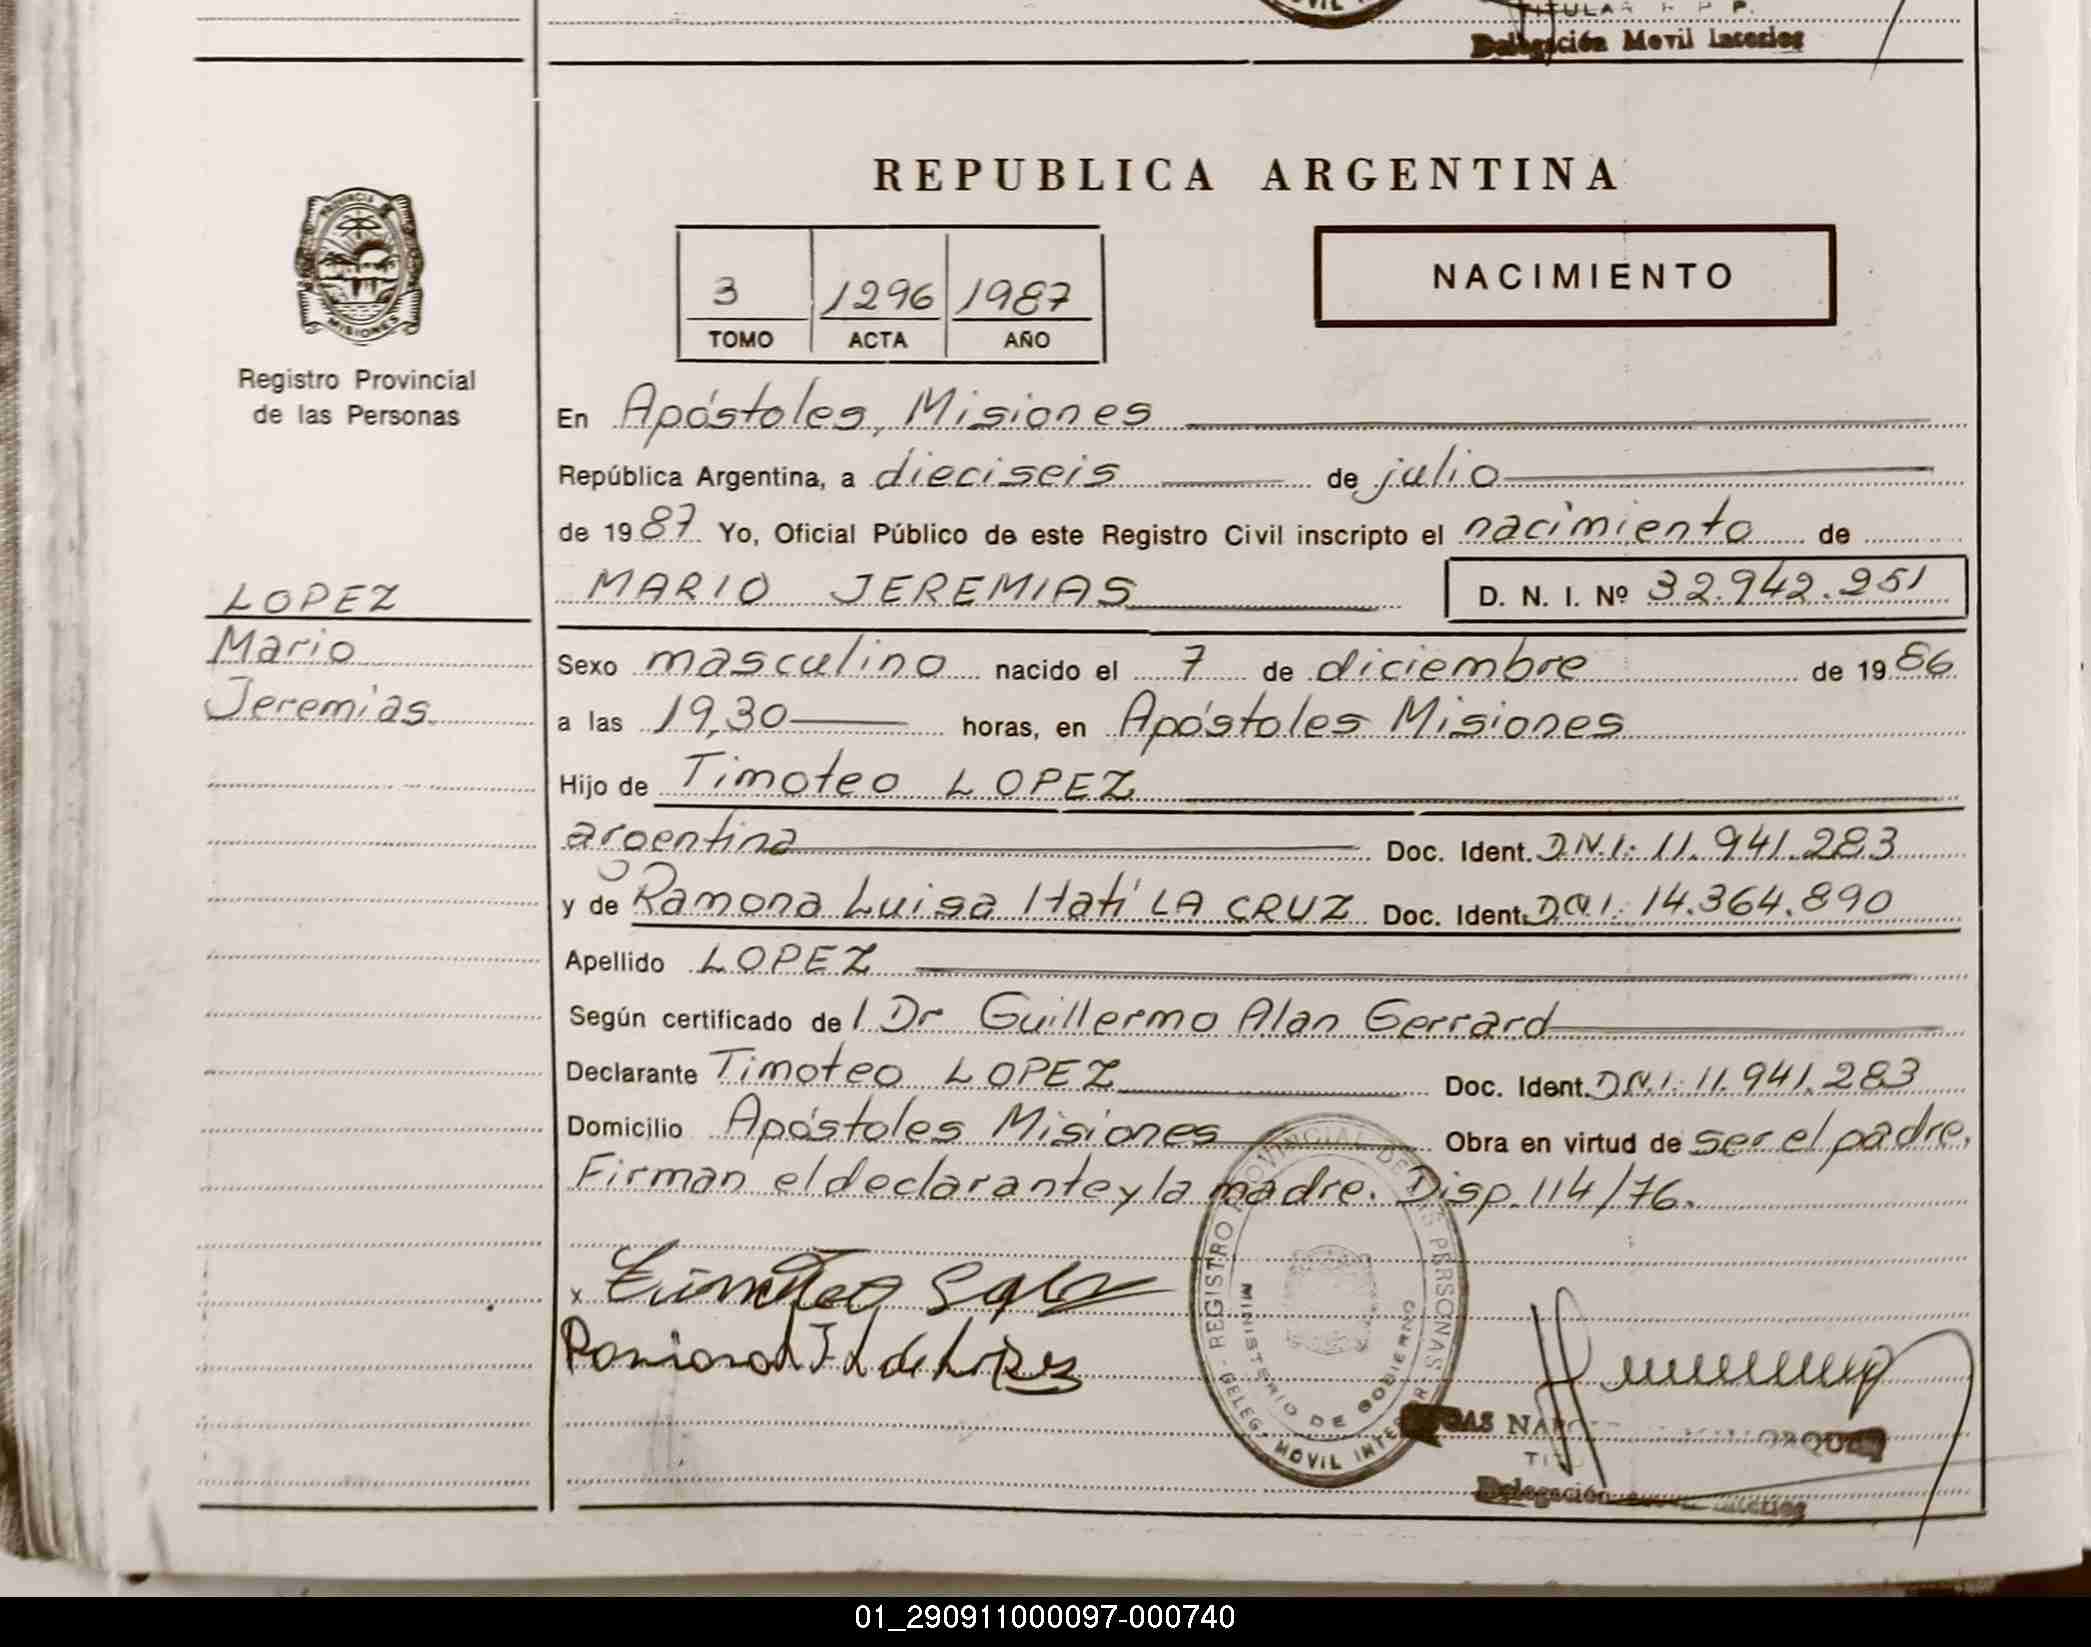 TITULAR R P P.
Delegación Movil Interior
REPUBLICA ARGENTINA
PROVINCIA
MISIONES
Registro Provincial
de las Personas
3 1296 1987
TOMO ACTA AÑO
NACIMIENTO
En Apóstoles, Misiones
República Argentina, a dieciseis de julio
de 1987 Yo, Oficial Público de este Registro Civil inscripto el nacimiento de
MARIO JEREMIAS D. N. I. Nº 32.942.251
LOPEZ
Mario
Jeremias.
Sexo masculino nacido el 7 de diciembre de 1986
a las 19,30 horas, en Apóstoles Misiones
Hijo de Timoteo LOPEZ
argentina Doc. Ident. D.N.I: 11.941.283
y de Ramona Luisa Itatí LA CRUZ Doc. Ident. D.N.I: 14.364.890
Apellido LOPEZ
Según certificado de l Dr Guillermo Alan Gerrard
Declarante Timoteo LOPEZ Doc. Ident. D.N.I: 11.941.283
Domicilio Apóstoles Misiones Obra en virtud de ser el padre.
Firman el declarante y la madre. Disp. 114/76.
REGISTRO PROVINCIAL DE LAS PERSONAS
MINISTERIO DE GOBIERNO
DELEG. MOVIL INTERIOR
x Timoteo
Ramona
Delegación
01_290911000097-000740